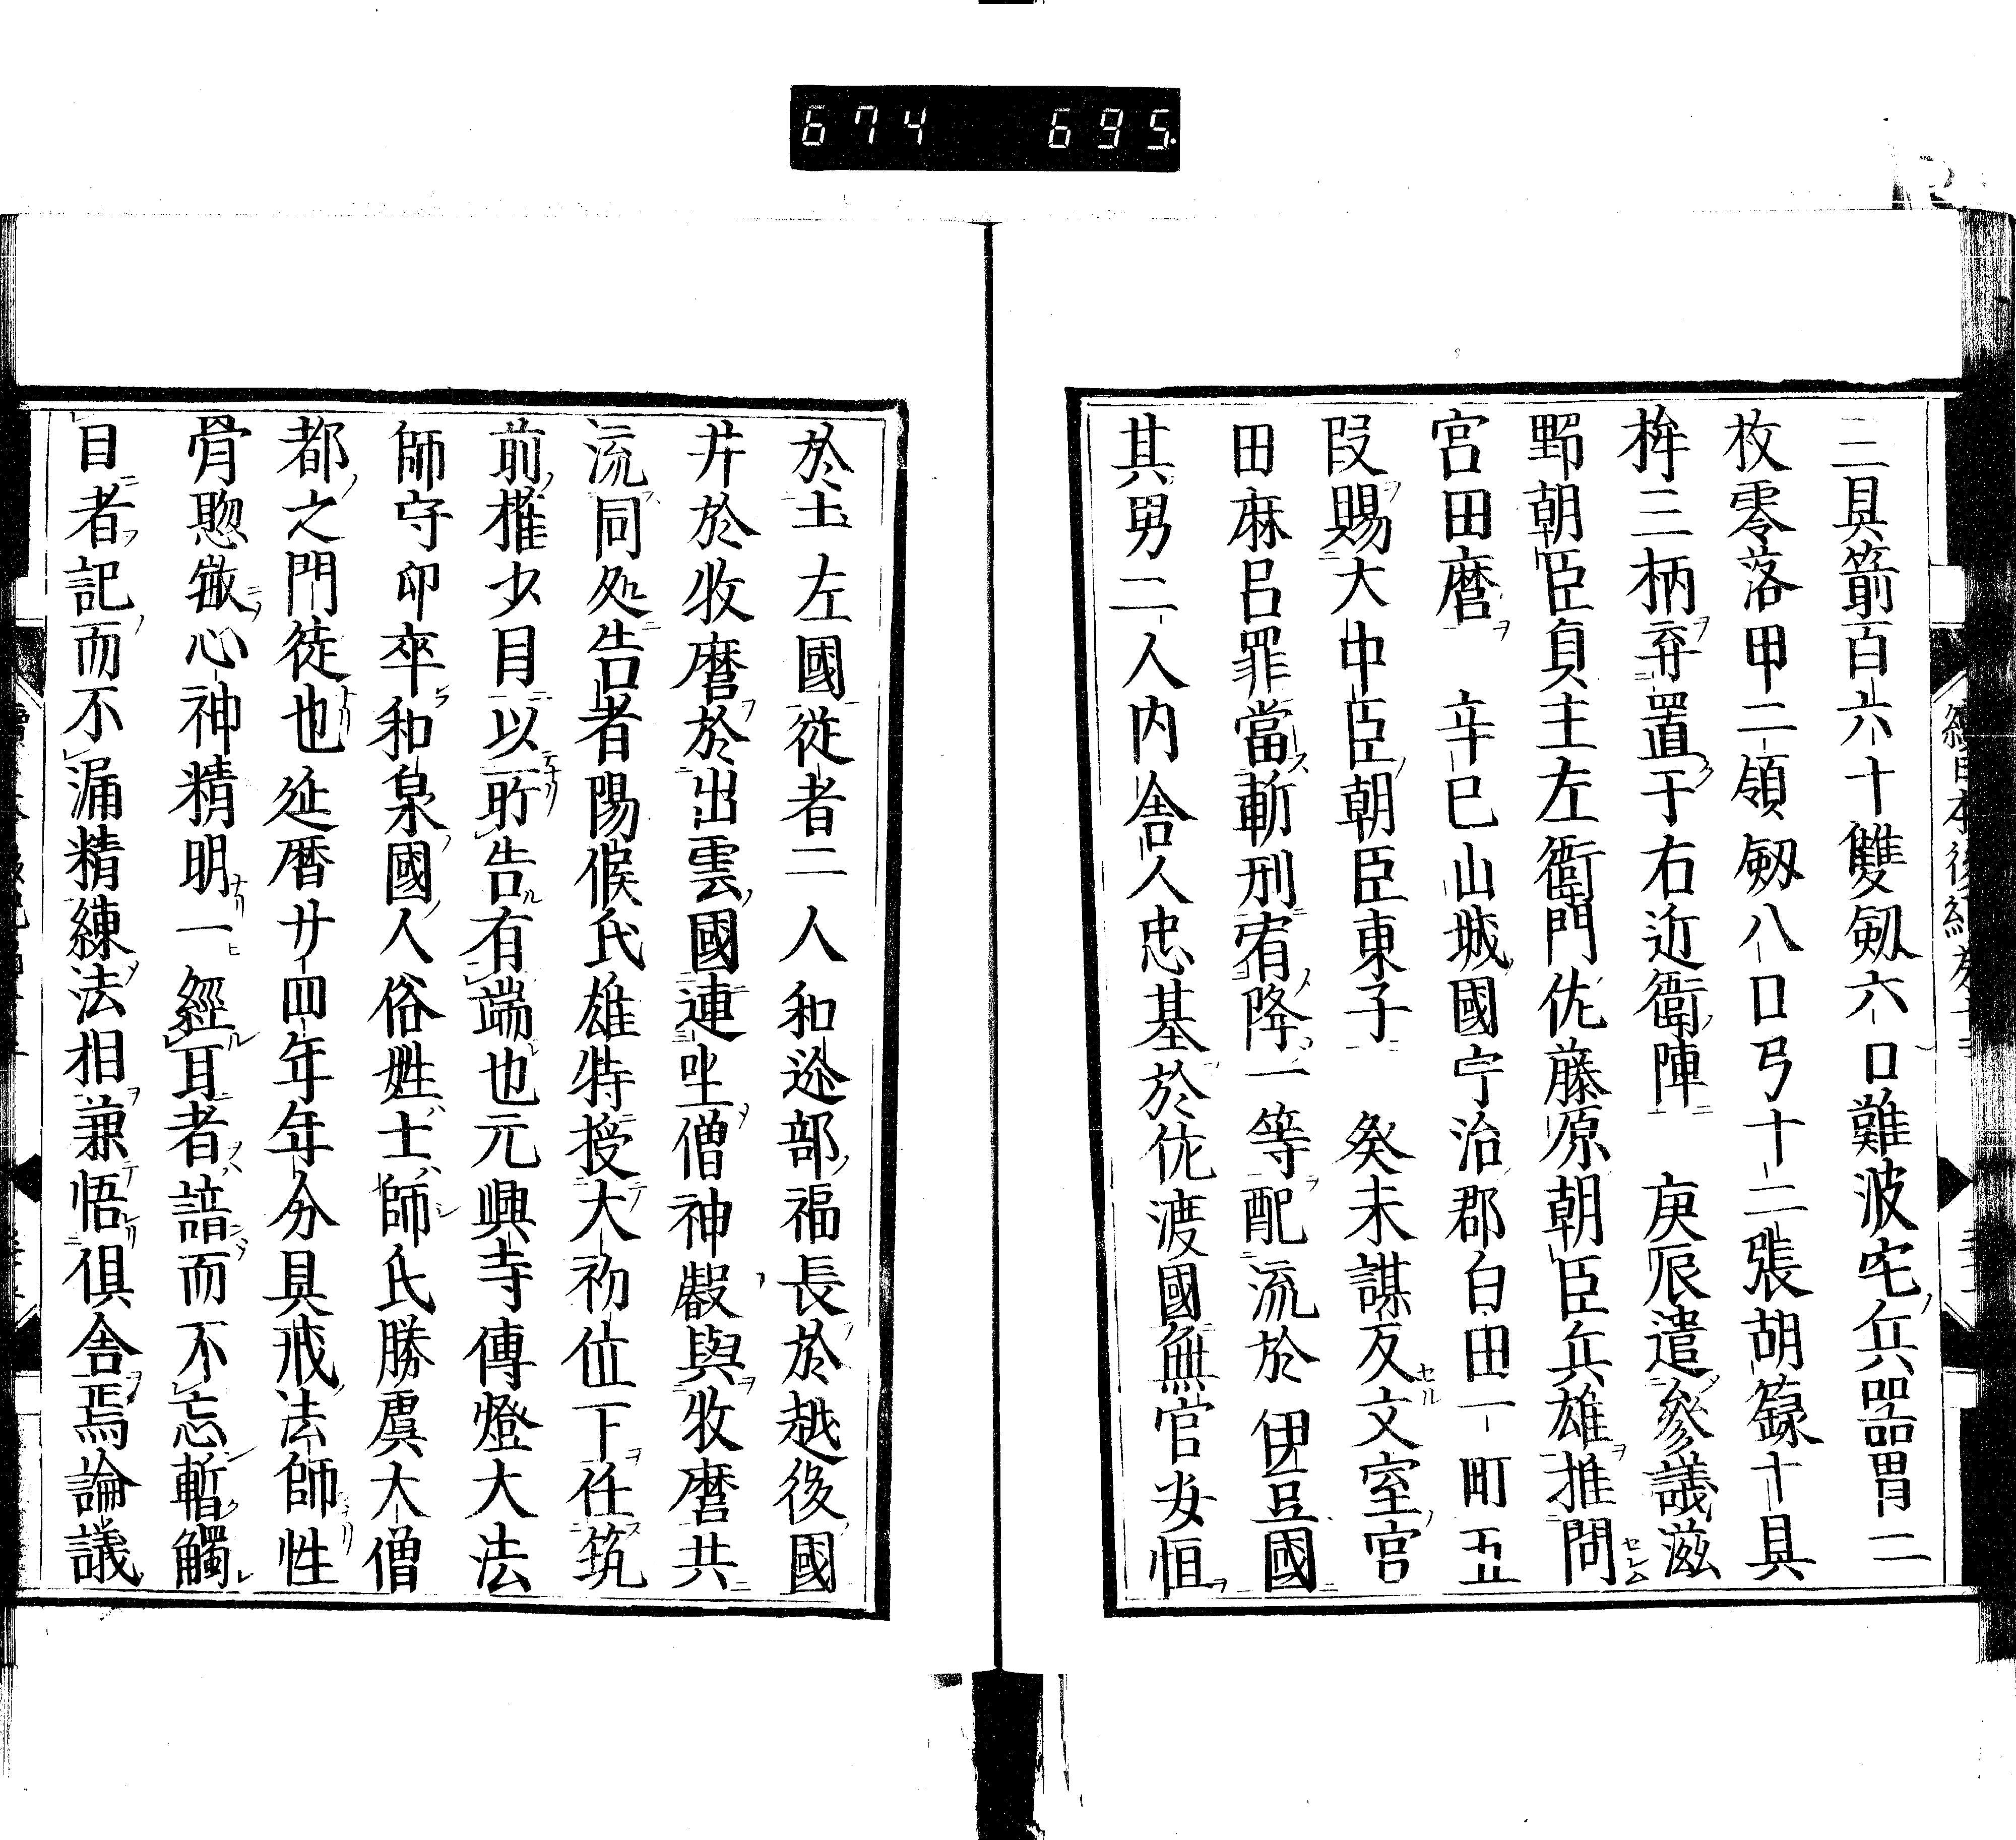 674 695
三具箭百六十雙劔六口難波宅兵器胃二
枚零落甲二領劔八口弓十二張胡籙十具
桙三柄弃置于右近衛陣 庚辰遣參議滋
野朝臣貞主左衛門佐藤原朝臣兵雄推問
宮田麿 辛巳山城國宁治郡白田一町五
段賜大中臣朝臣東子 癸未謀反文室宮
田麻呂罪當斬刑宥降一等配流於伊豆國
其男二人內舍人忠基於佐渡國無官安恒
於土左國從者二人和迩部福長於越後國
井於收麿於出雲國連坐僧神叡與收麿共
流同处告者陽侯氏雄特授大初位下任筑
前權少目以所告有端也元興寺傳燈大法
師守卯卒和泉國人俗姓士師氏勝虞大僧
都之門徒也延暦廿四年年分具戒法師性
骨愡𢿫心神精明一經耳者諳而不忘暫觸
目者記而不漏精練法相兼悟俱舍焉論議